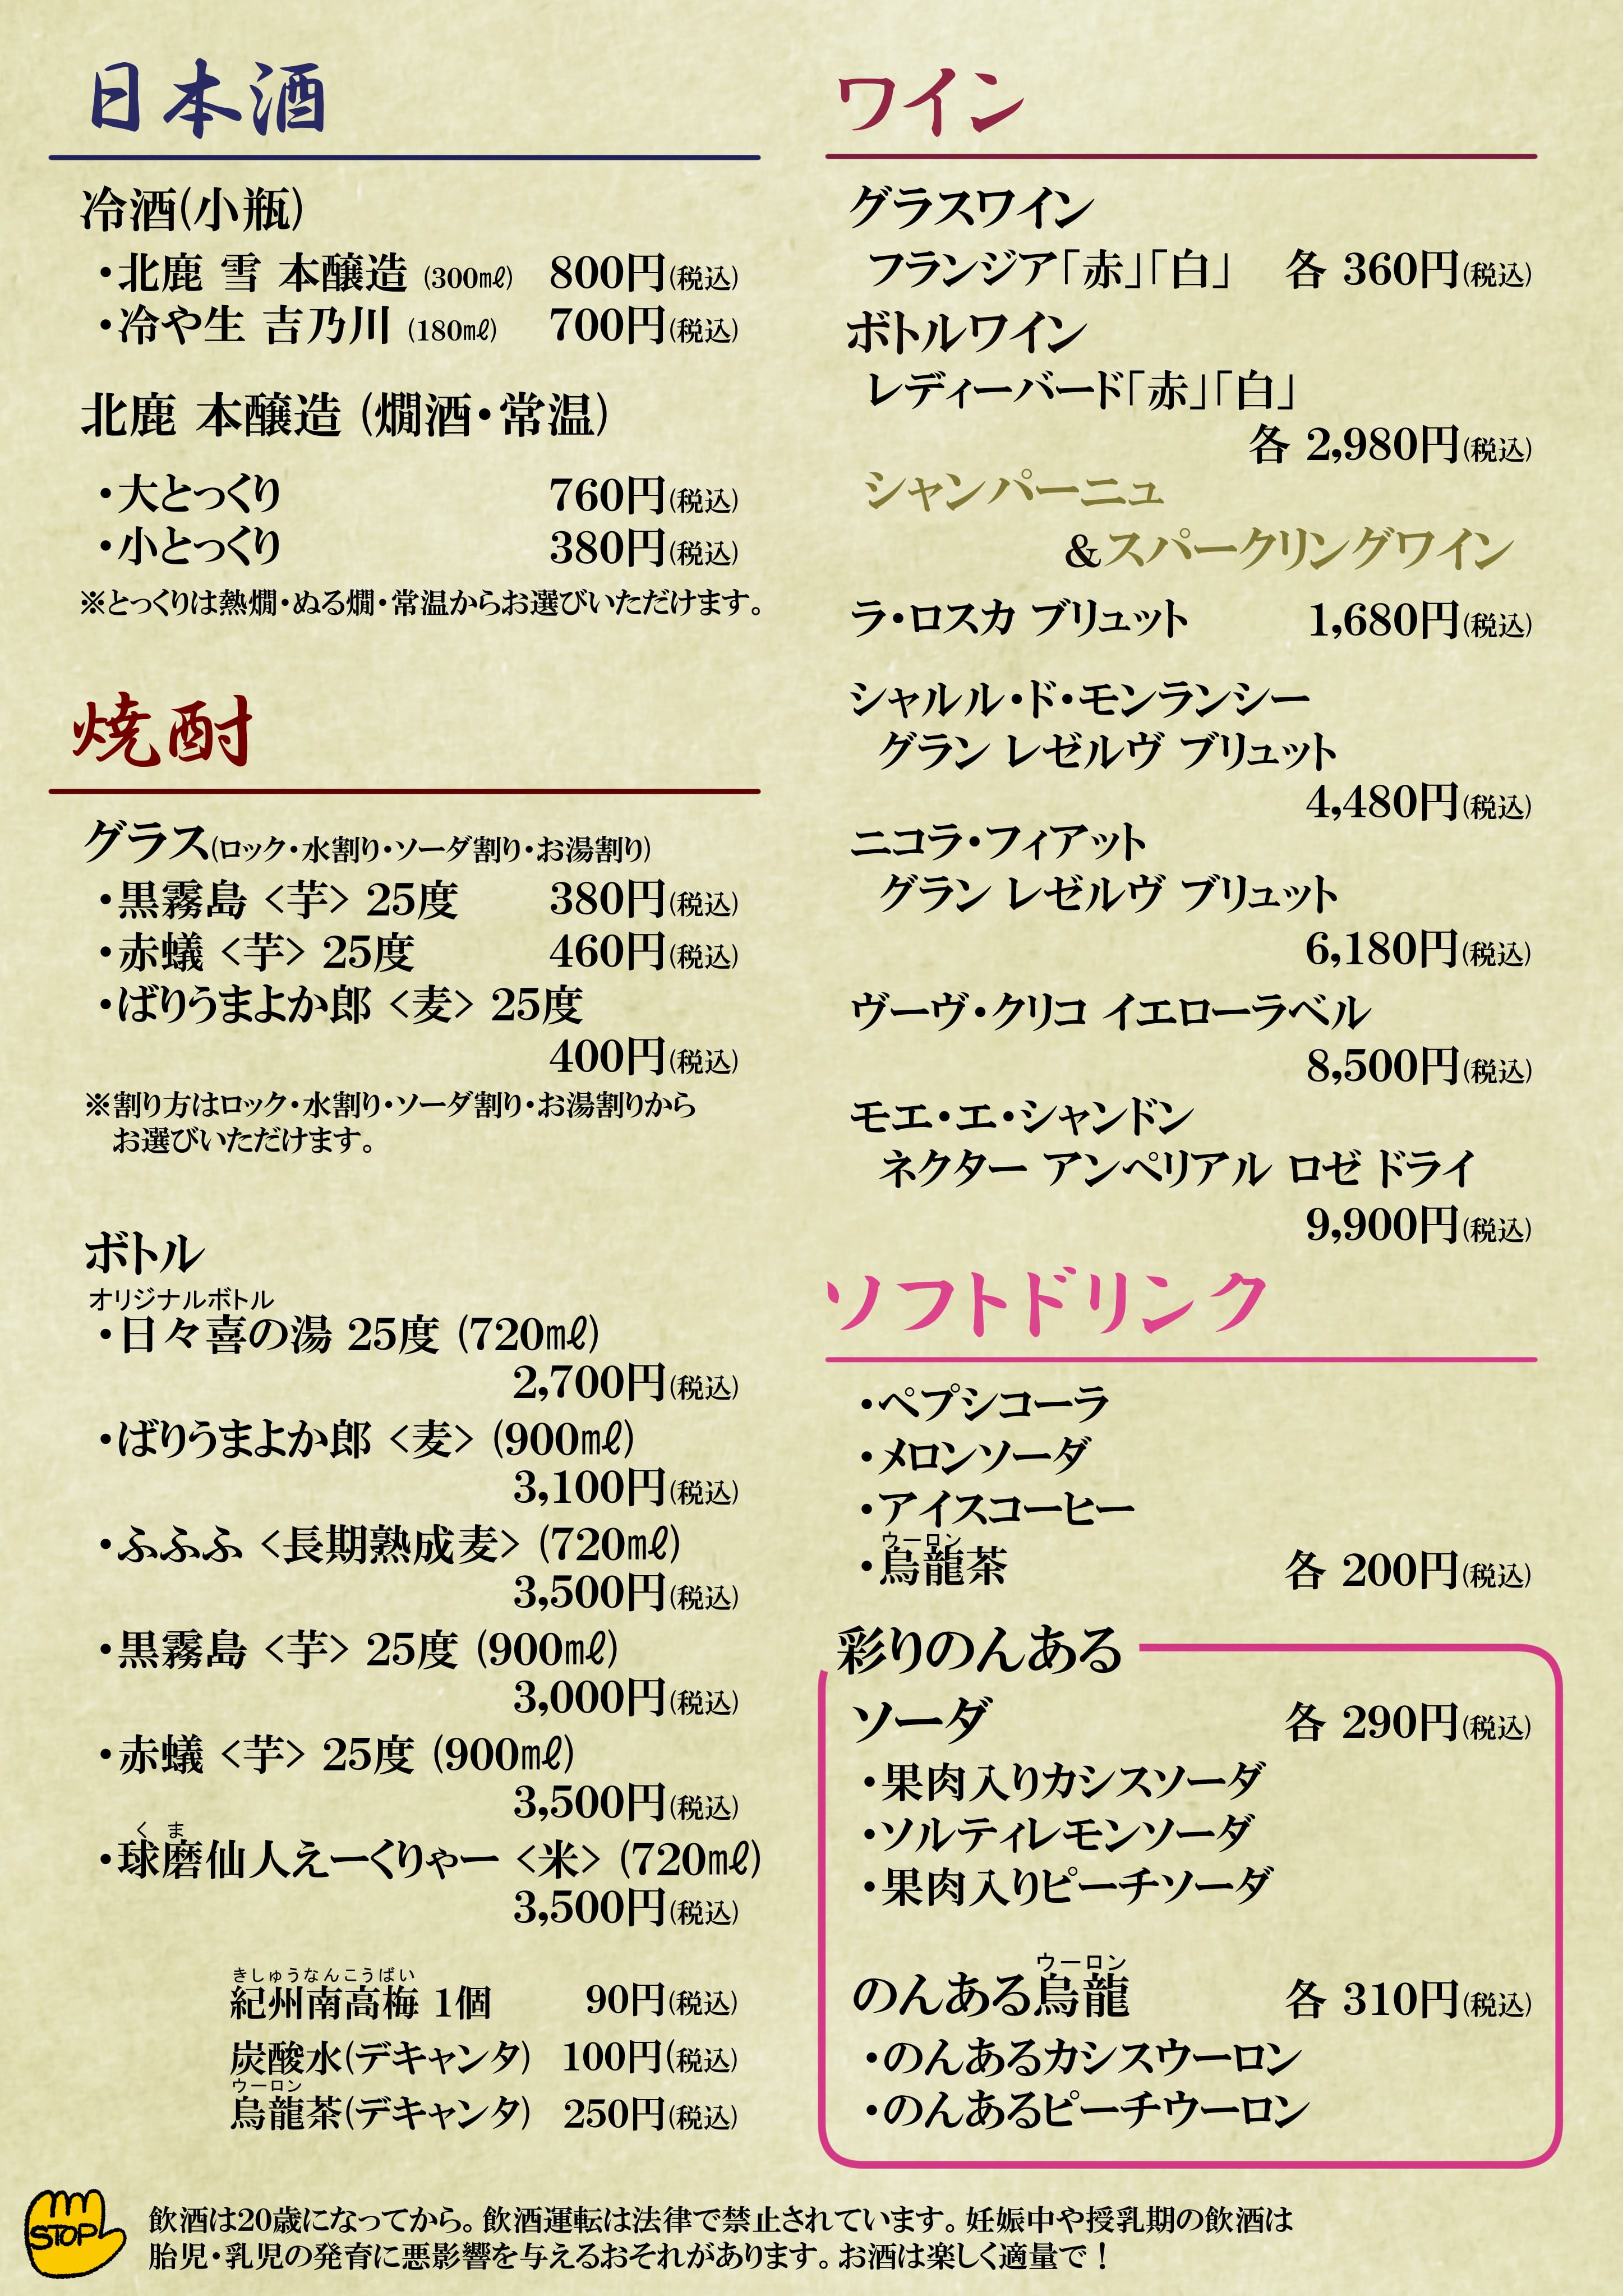 日本酒
冷酒(小瓶)
・北鹿 雪 本醸造 (300㎖) 800円(税込)
・冷や生 吉乃川 (180㎖) 700円(税込)
北鹿 本醸造 (燗酒・常温)
・大とっくり 760円(税込)
・小とっくり 380円(税込)
※とっくりは熱燗・ぬる燗・常温からお選びいただけます。
焼酎
グラス(ロック・水割り・ソーダ割り・お湯割り)
・黒霧島 <芋> 25度 380円(税込)
・赤蟻 <芋> 25度 460円(税込)
・ばりうまよか郎 <麦> 25度
400円(税込)
※割り方はロック・水割り・ソーダ割り・お湯割りから
お選びいただけます。
ボトル
オリジナルボトル
・日々喜の湯 25度 (720㎖)
2,700円(税込)
・ばりうまよか郎 <麦> (900㎖)
3,100円(税込)
・ふふふ <長期熟成麦> (720㎖)
3,500円(税込)
・黒霧島 <芋> 25度 (900㎖)
3,000円(税込)
・赤蟻 <芋> 25度 (900㎖)
3,500円(税込)
くま
・球磨仙人えーくりゃー <米> (720㎖)
3,500円(税込)
きしゅうなんこうばい
紀州南高梅 1個 90円(税込)
炭酸水(デキャンタ) 100円(税込)
ウーロン
烏龍茶(デキャンタ) 250円(税込)
ワイン
グラスワイン
フランジア「赤」「白」 各 360円(税込)
ボトルワイン
レディーバード「赤」「白」
各 2,980円(税込)
シャンパーニュ
&スパークリングワイン
ラ・ロスカ ブリュット 1,680円(税込)
シャルル・ド・モンランシー
グラン レゼルヴ ブリュット
4,480円(税込)
ニコラ・フィアット
グラン レゼルヴ ブリュット
6,180円(税込)
ヴーヴ・クリコ イエローラベル
8,500円(税込)
モエ・エ・シャンドン
ネクター アンペリアル ロゼ ドライ
9,900円(税込)
ソフトドリンク
・ペプシコーラ
・メロンソーダ
・アイスコーヒー
ウーロン
・烏龍茶 各 200円(税込)
彩りのんある
ソーダ 各 290円(税込)
・果肉入りカシスソーダ
・ソルティレモンソーダ
・果肉入りピーチソーダ
ウーロン
のんある烏龍 各 310円(税込)
・のんあるカシスウーロン
・のんあるピーチウーロン
STOP
飲酒は20歳になってから。飲酒運転は法律で禁止されています。妊娠中や授乳期の飲酒は
胎児・乳児の発育に悪影響を与えるおそれがあります。お酒は楽しく適量で！